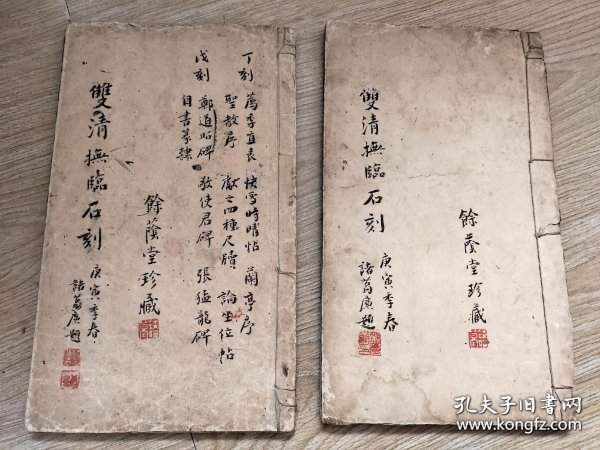 丁刻 薦季直表 快雪時晴帖 蘭亭序
聖教序 獻之四種尺牘 論坐位帖
戊刻 鄭道昭碑 敬使君碑 張猛龍碑
自書篆隸
餘蔭堂珍藏
雙清撫臨石刻
庚寅季春
諸葛廣題
餘蔭堂珍藏
雙清撫臨石刻
庚寅季春
諸葛廣題
孔夫子旧书网
www.kongfz.com